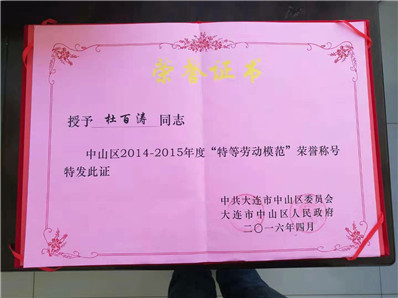 荣誉证书
授予 杜百涛 同志
中山区2014-2015年度“特等劳动模范”荣誉称号
特发此证
中共大连市中山区委员会
大连市中山区人民政府
二〇一六年四月